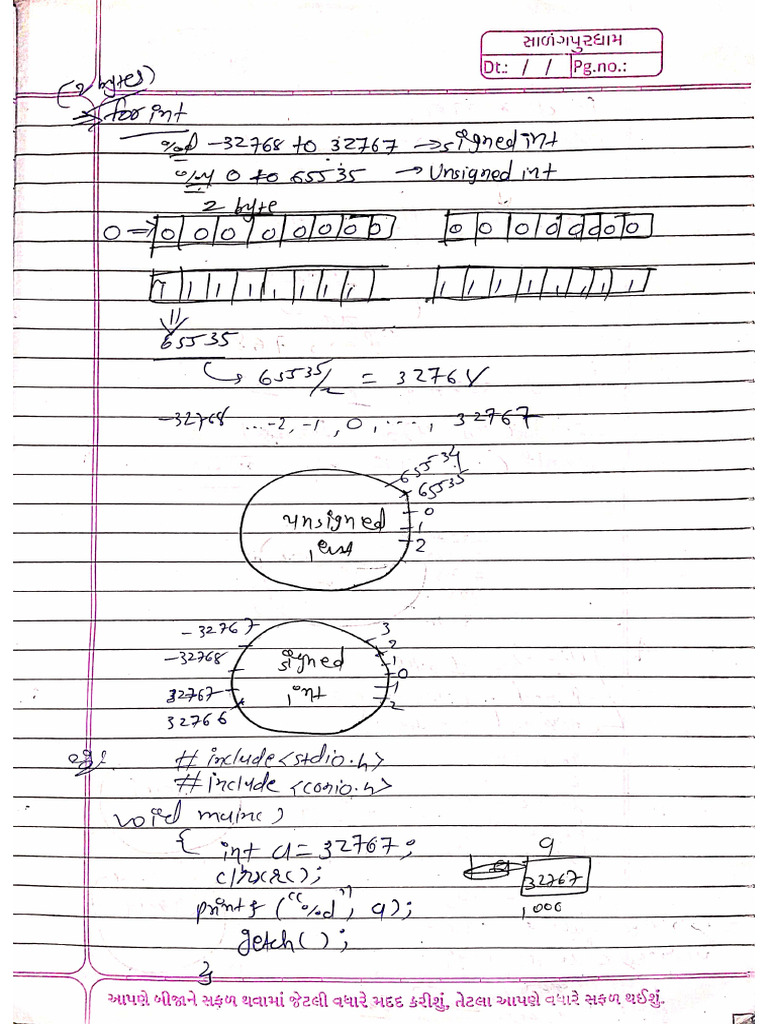 સાળંગપુરધામ
Dt.: / / Pg.no.:
(2 bytes)
⇒ for int
%d -32768 to 32767 → signed int
%u 0 to 65535 → Unsigned int
2 byte
0 ⇒ 0 0 0 0 0 0 0 0 0 0 0 0 0 0 0 0
1 1 1 1 1 1 1 1 1 1 1 1 1 1 1 1
65535
↳ 65535/2 = 32768
-32768 ...-2, -1, 0, ..., 32767
65534
65535
0
unsigned
1
int
2
-32767
3
2
-32768
signed
1
0
32767
int
-1
32766
-2
eg:
# include<stdio.h>
# include <conio.h>
void main()
{
int a = 32767;
a
clrscr();
32767
printf ("%d", a);
1000
getch();
}
આપણે બીજાને સફળ થવામાં જેટલી વધારે મદદ કરીશું, તેટલા આપણે વધારે સફળ થઈશું.